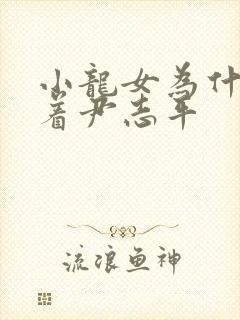 小龍女為什
着尹志平
流浪鱼神